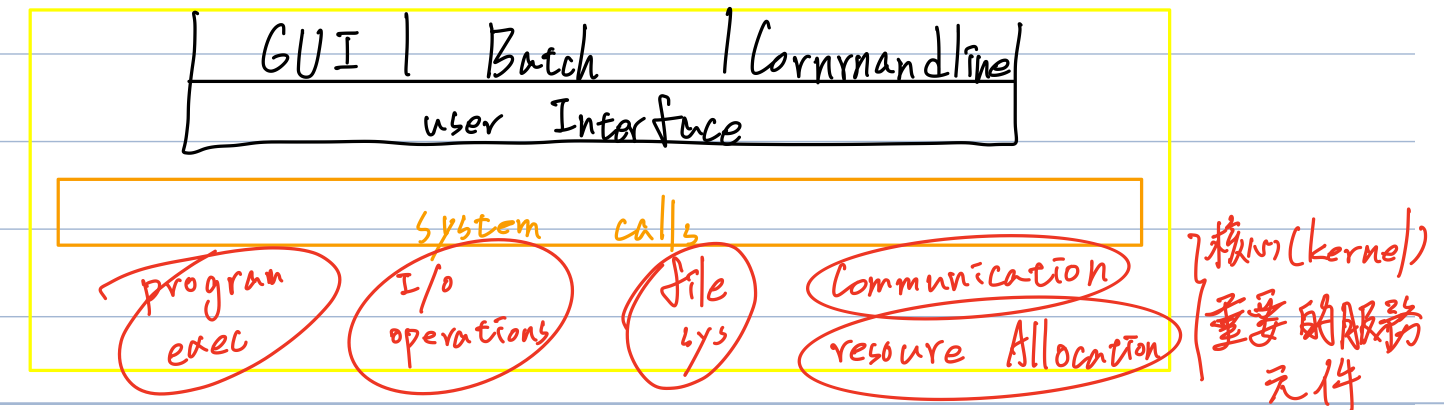 GUI | Batch | Commandline
user Interface
system calls
program exec
I/o operations
file sys
Communication
resoure Allocation
核心(kernel)
重要的服務
元件